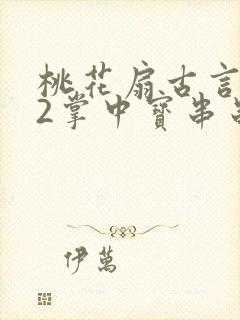 桃花扇古言
2掌中寶串
伊萬